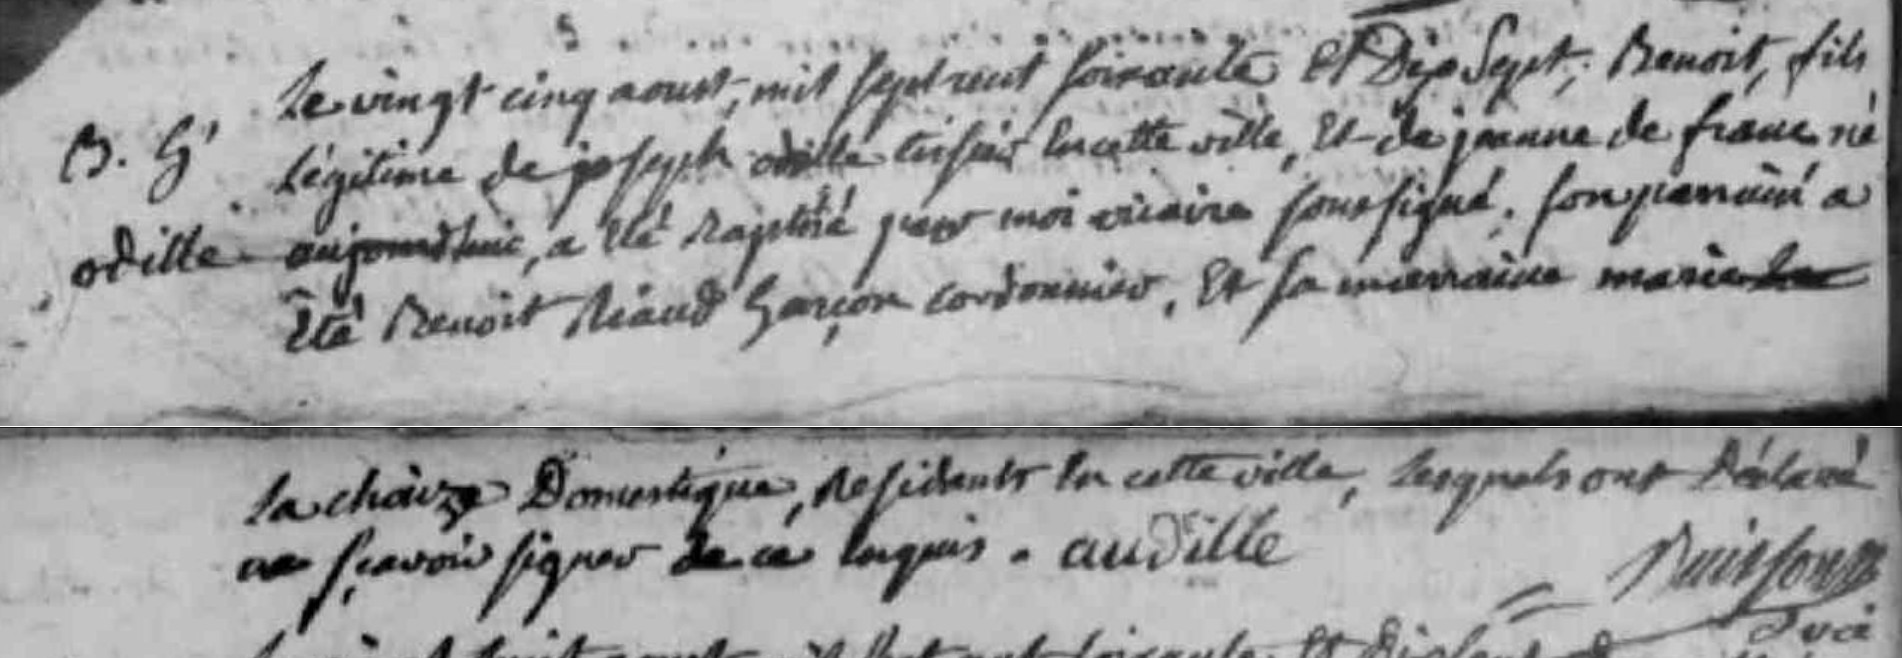 Le vingt cinq aoust, mil sept cent soixante Et Dix Sept, Benoit, fils
B. G.
Légitime de joseph odille tissier En cette ville, Et de jeanne de franc né
odille
aujourdhuic, a Eté Baptisé par moi vicaire soussigné. son parrain a
Eté Benoit Riaud Garçon cordonnier, Et sa marraine marie
la chaize Domestique, Residents En cette ville, Lesquels ont Déclaré
ne sçavoir signer de ce Enquis. audille
Buisson
vic